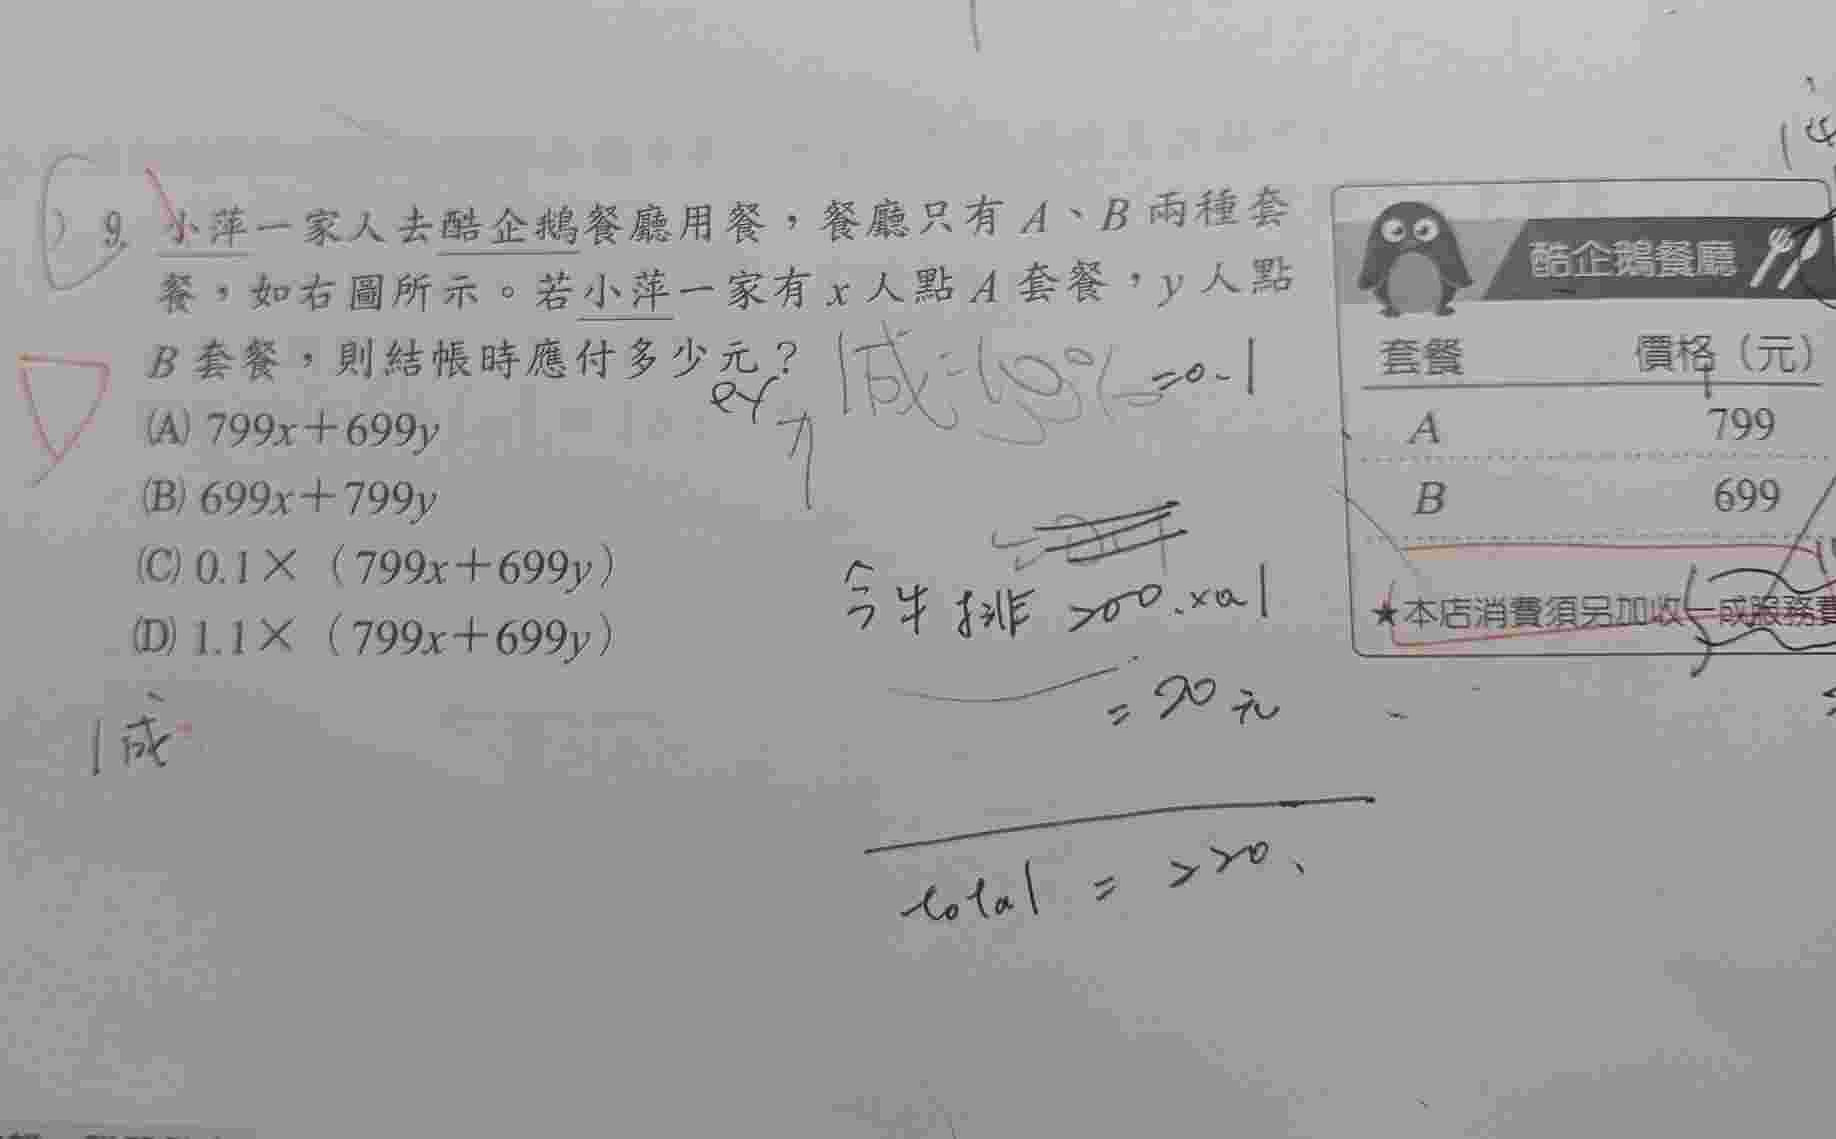 ) 9. 小萍一家人去酷企鵝餐廳用餐,餐廳只有 A、B 兩種套
餐,如右圖所示。若小萍一家有 x 人點 A 套餐,y 人點
B 套餐,則結帳時應付多少元?
(A) 799x+699y
(B) 699x+799y
(C) 0.1×(799x+699y)
(D) 1.1×(799x+699y)
1成
ex
1成=10%=0.1
今牛排 200.×0.1
=20元
total = 220、
酷企鵝餐廳
套餐 價格(元)
A 799
B 699
★本店消費須另加收一成服務費